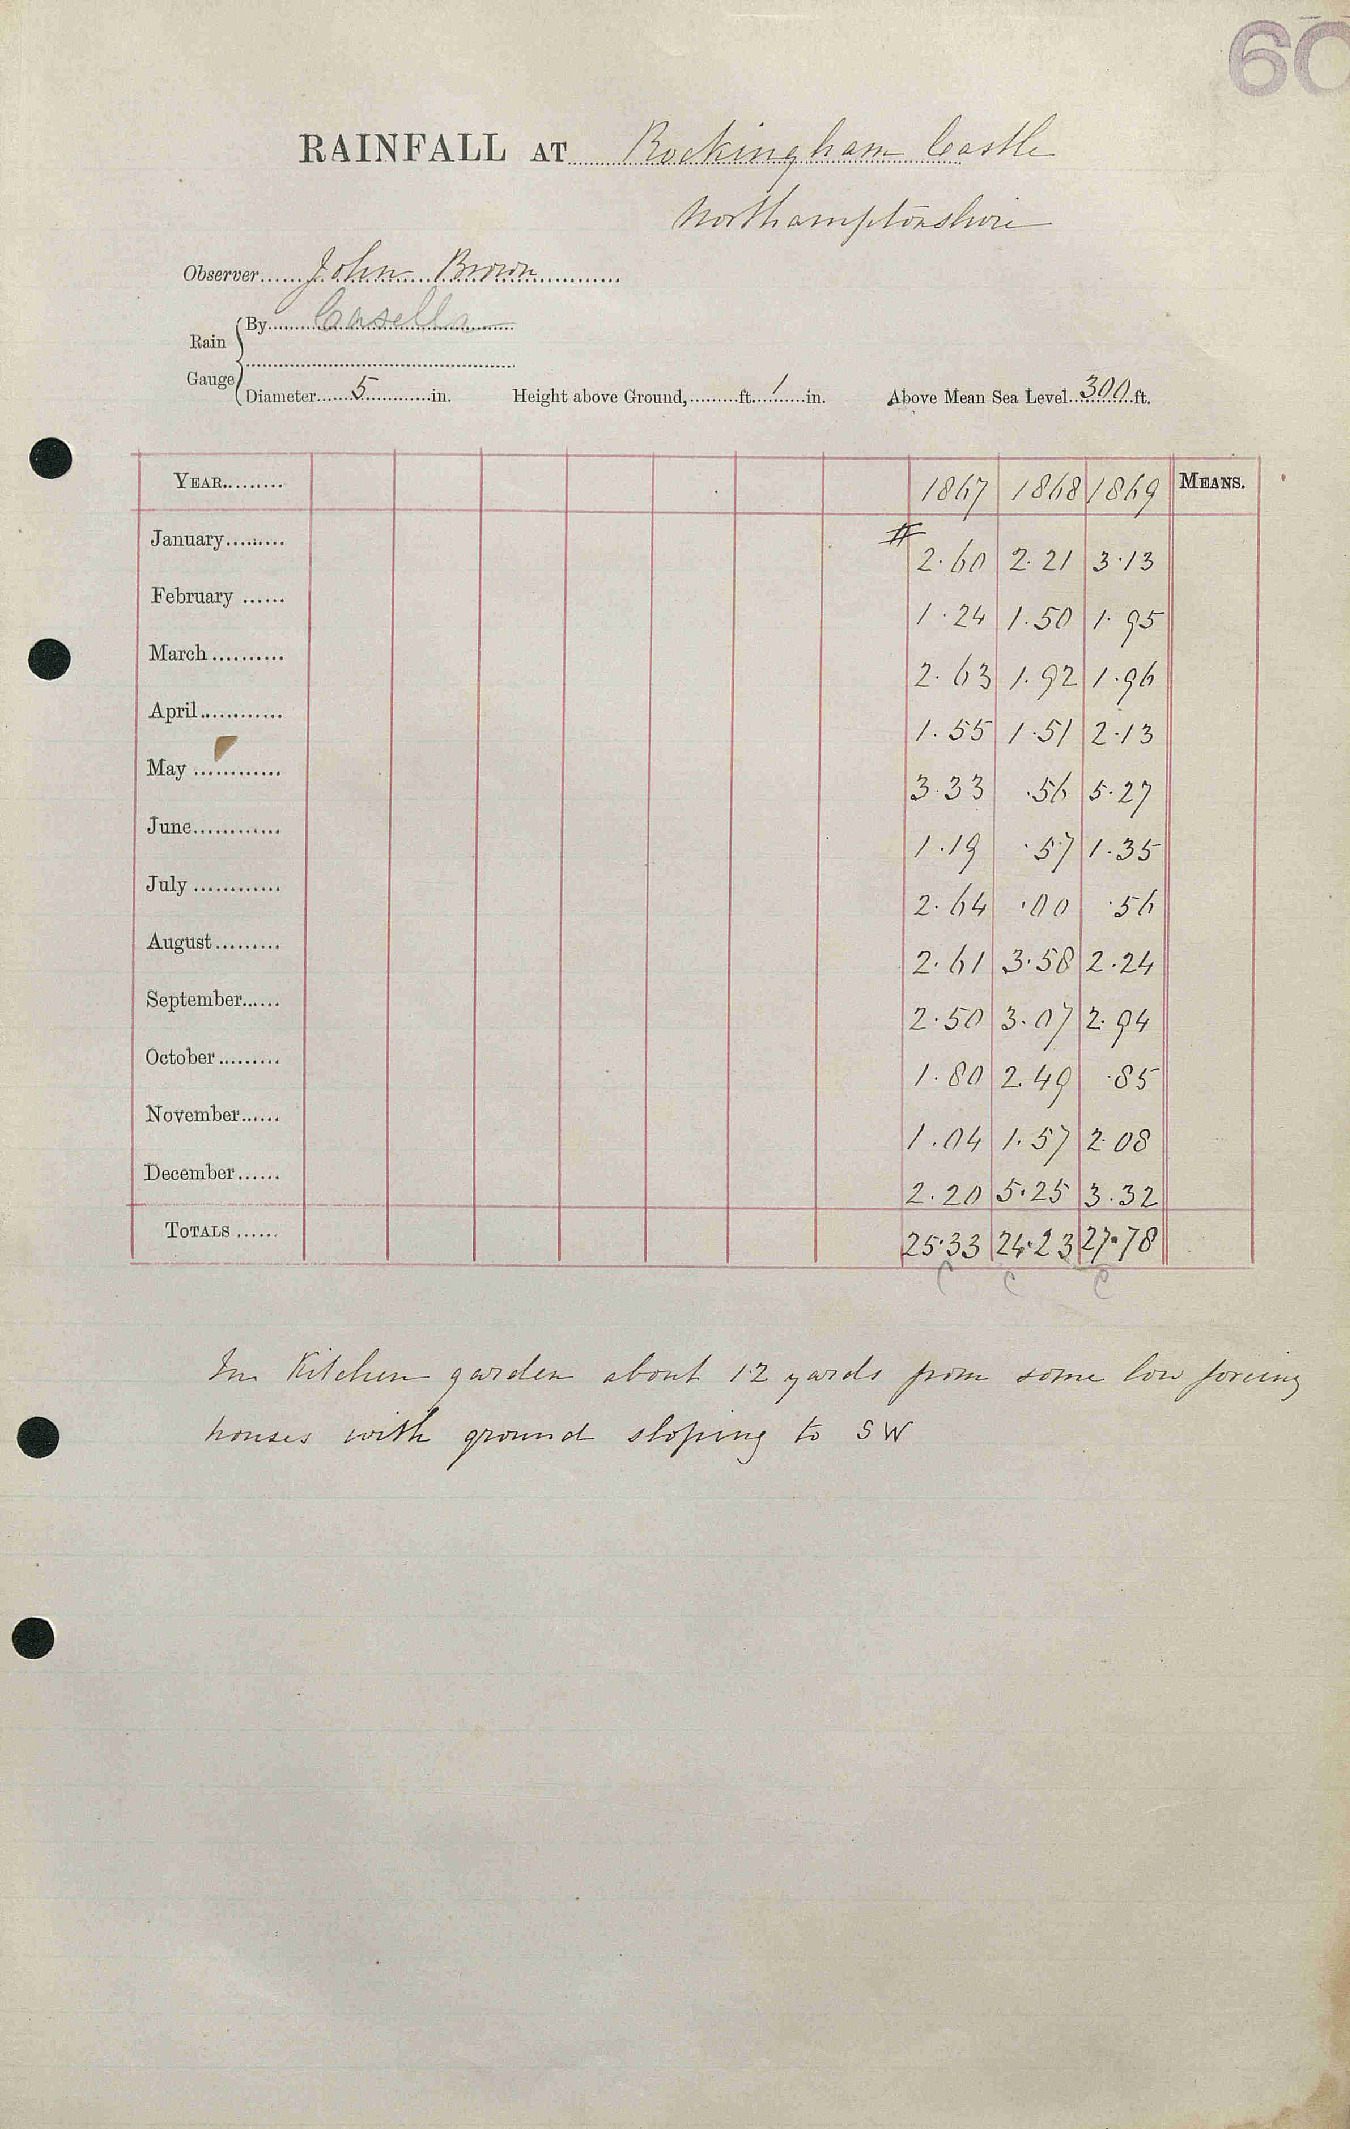 60
RAINFALL AT Rockingham Castle
Northamptonshire
Observer......John Brown............
Rain Gauge { By........Casella........
Diameter......5............in. Height above Ground,.........ft....1......in. Above Mean Sea Level..300..ft.
YEAR......... 1867 1868 1869 MEANS.
January......... # 2.60 2.21 3.13
February ...... 1.24 1.50 1.95
March.......... 2.63 1.92 1.96
April............ 1.55 1.51 2.13
May ............ 3.33 .56 5.27
June............ 1.19 .57 1.35
July ............ 2.64 .00 .56
August......... 2.61 3.58 2.24
September...... 2.50 3.07 2.94
October......... 1.80 2.49 .85
November...... 1.04 1.57 2.08
December...... 2.20 5.25 3.32
TOTALS ...... 25.33 24.23 27.78
C C C
In Kitchen garden about 12 yards from some low forcing
houses with ground sloping to SW